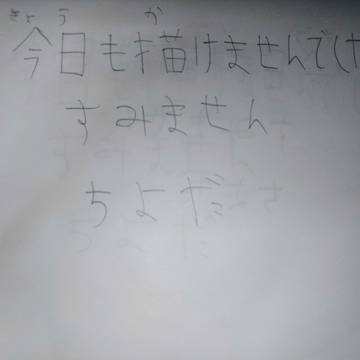 きょう か
今日も描けませんでした
すみません
ちよだ